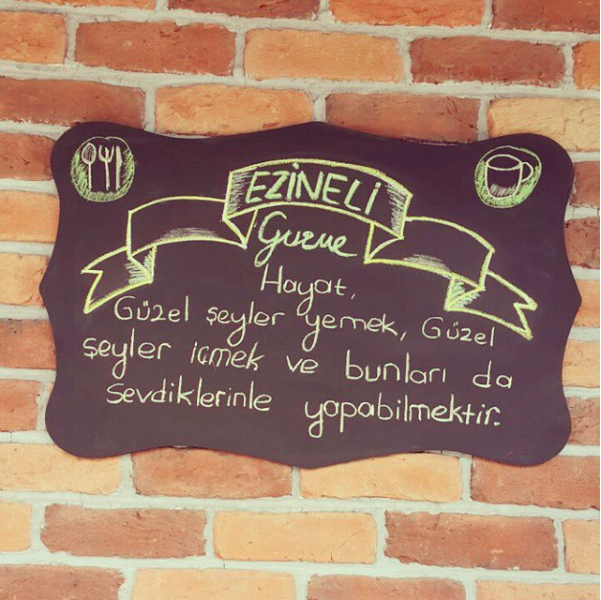 EZİNELİ
Gurme
Hayat,
Güzel şeyler yemek, Güzel
şeyler içmek ve bunları da
Sevdiklerinle yapabilmektir.